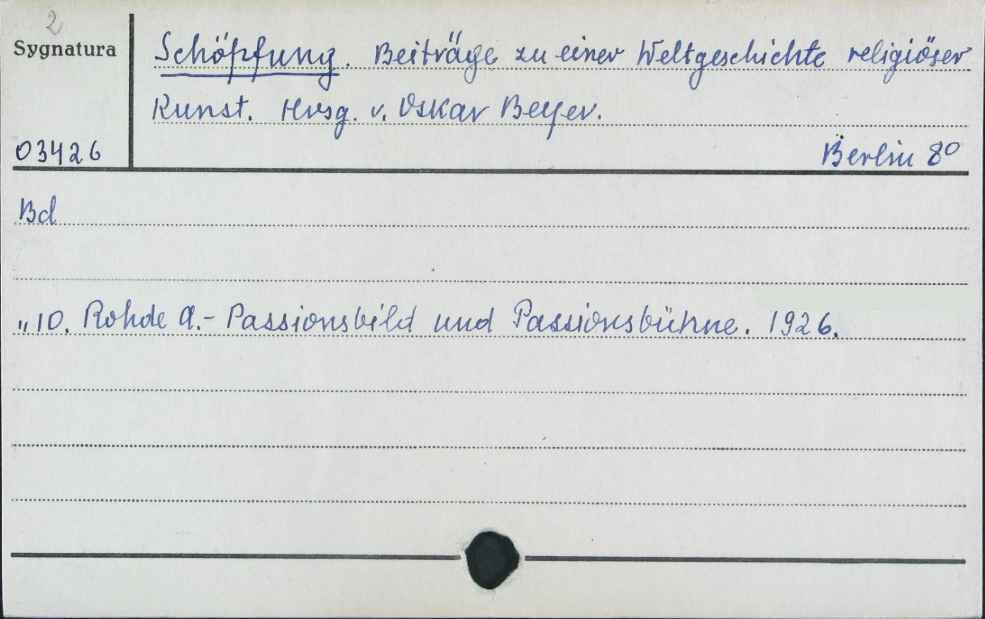 2
Sygnatura
Schöpfung. Beiträge zu einer Weltgeschichte religiöser
Kunst. Hrsg. v. Oskar Beyer.
03426
Berlin 8°
Bd
„ 10. Rohde A.- Passionsbild und Passionsbühne. 1926.